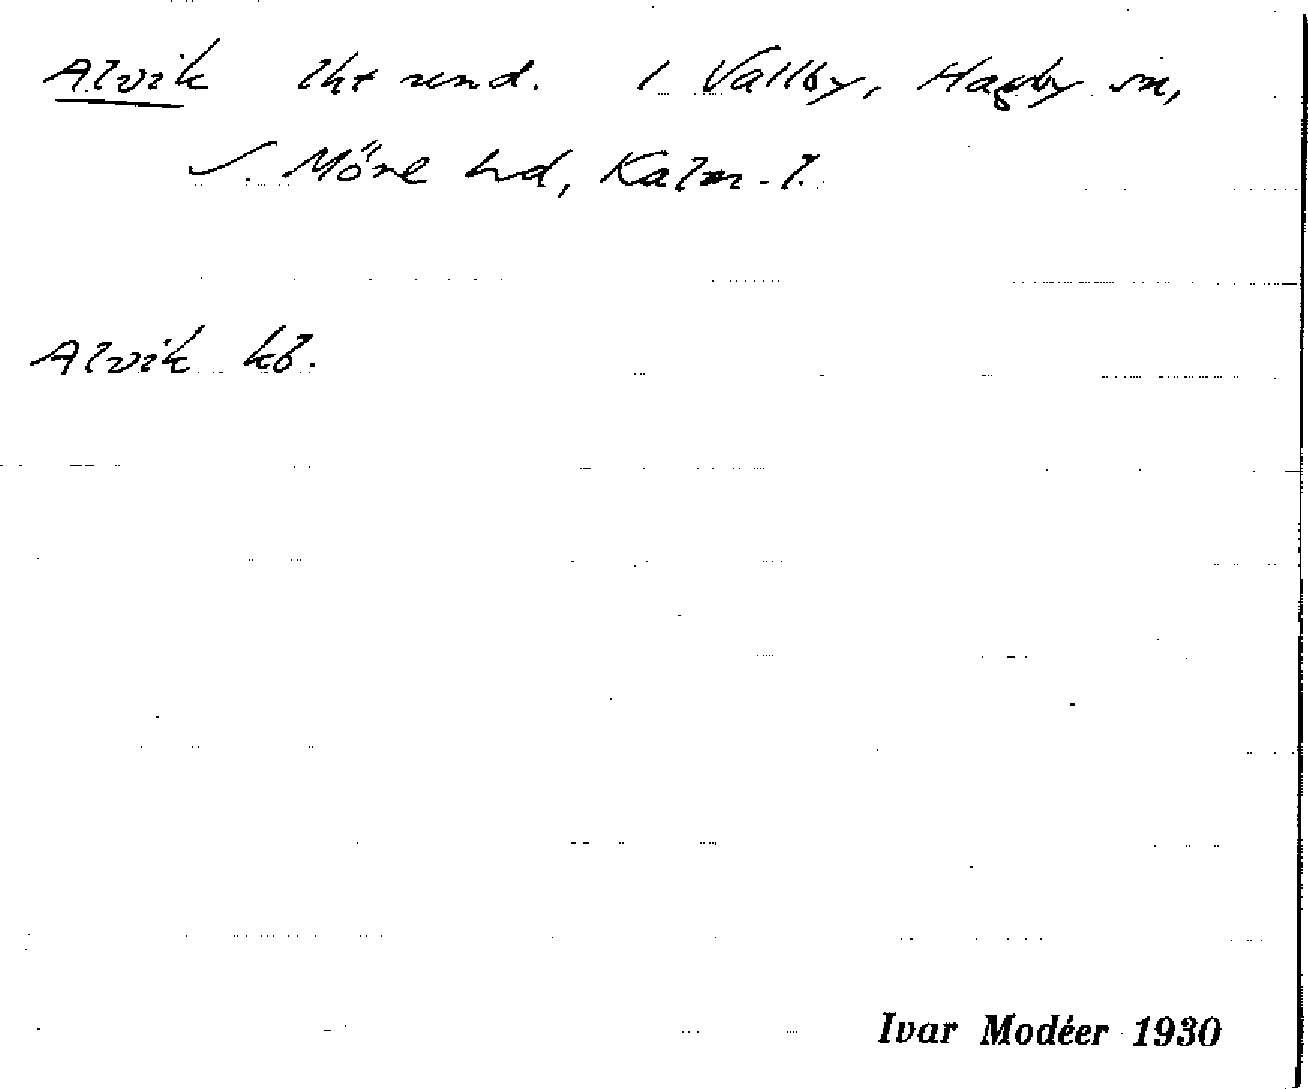 Alvik lht und. 1 Vallby, Hagby sn,
S. Möre hd, Kalm. l.
Alvik kb.
Ivar Modéer 1930